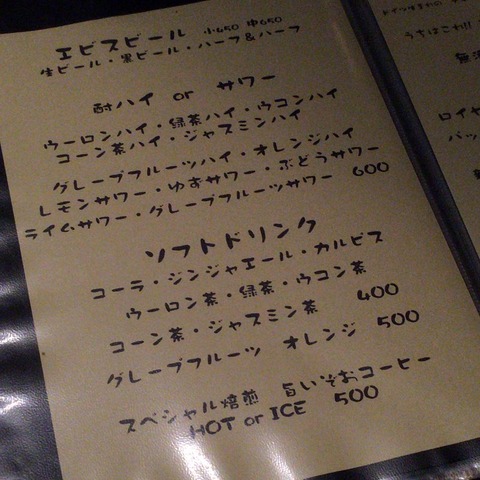 エビスビール 小450 中650
生ビール・黒ビール・ハーフ&ハーフ
酎ハイ or サワー
ウーロンハイ・緑茶ハイ・ウコンハイ
コーン茶ハイ・ジャスミンハイ
グレープフルーツハイ・オレンジハイ
レモンサワー・ゆずサワー・ぶどうサワー
ライムサワー・グレープフルーツサワー 600
ソフトドリンク
コーラ・ジンジャエール・カルピス
ウーロン茶・緑茶・ウコン茶
コーン茶・ジャスミン茶 400
グレープフルーツ オレンジ 500
スペシャル焙煎 旨いぞおコーヒー
HOT or ICE 500
うちはこれ!!
ロイヤ
バッ